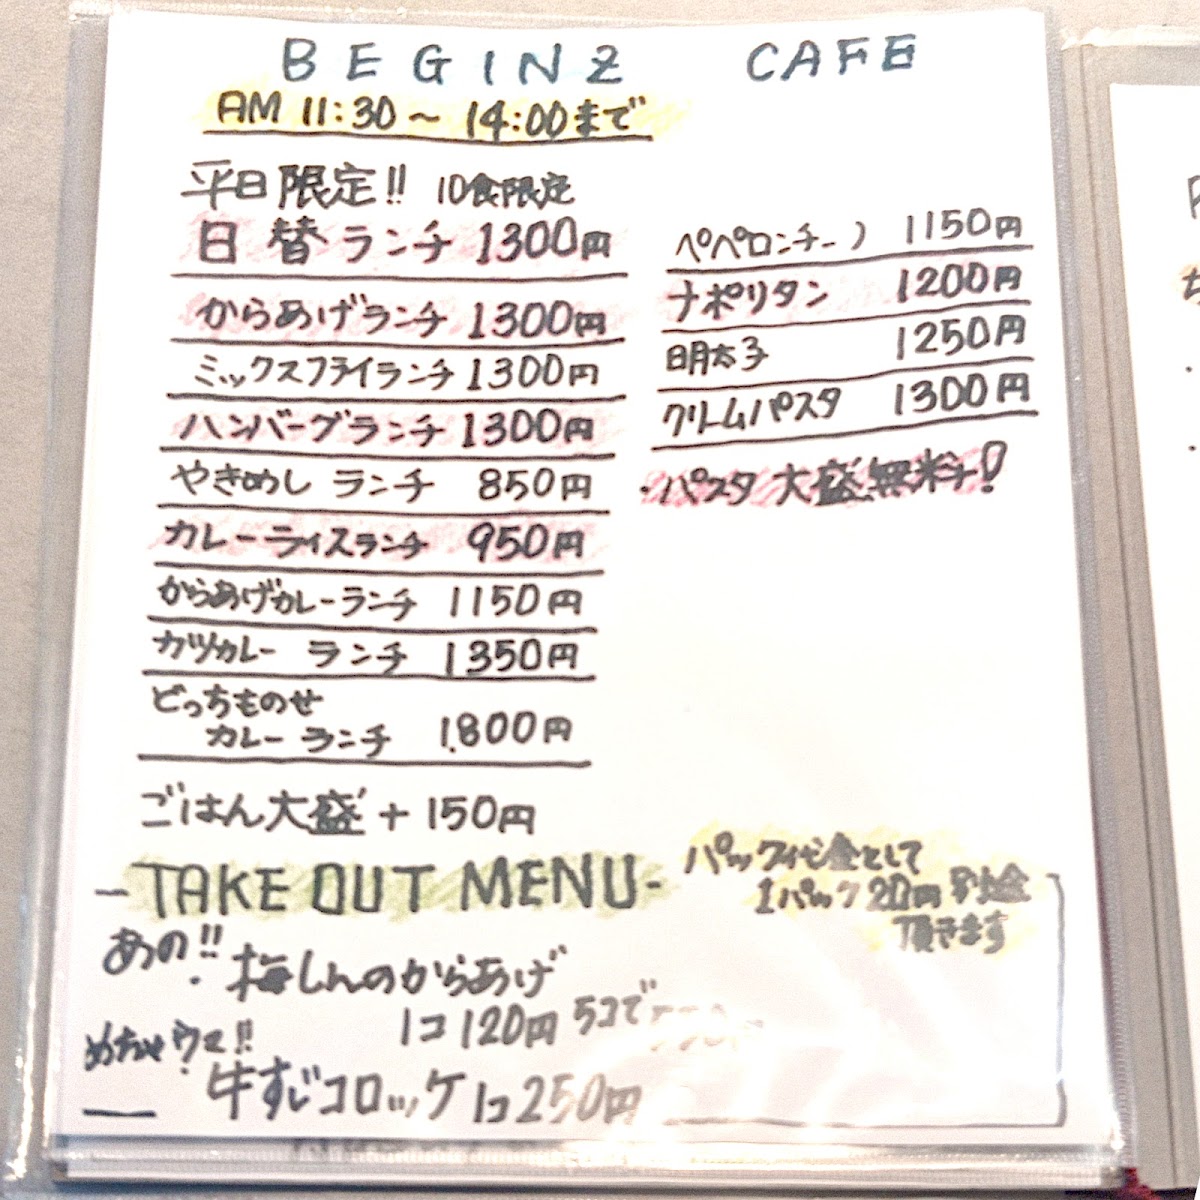 BEGINZ CAFE
AM 11:30～14:00まで
平日限定!! 10食限定
日替ランチ 1300円
からあげランチ 1300円
ミックスフライランチ 1300円
ハンバーグランチ 1300円
やきめし ランチ 850円
カレーライスランチ 950円
からあげカレーランチ 1150円
カツカレー ランチ 1350円
どっちものせ
カレー ランチ 1,800円
ごはん大盛 + 150円
ペペロンチーノ 1150円
ナポリタン 1200円
明太子 1250円
クリームパスタ 1300円
・パスタ 大盛無料!
-TAKE OUT MENU-
パック代金として
1パック20円 別途
頂きます
あの!!
梅しんのからあげ
1コ 120円 5コで
めちゃウマ!!
牛すじコロッケ 1コ 250円